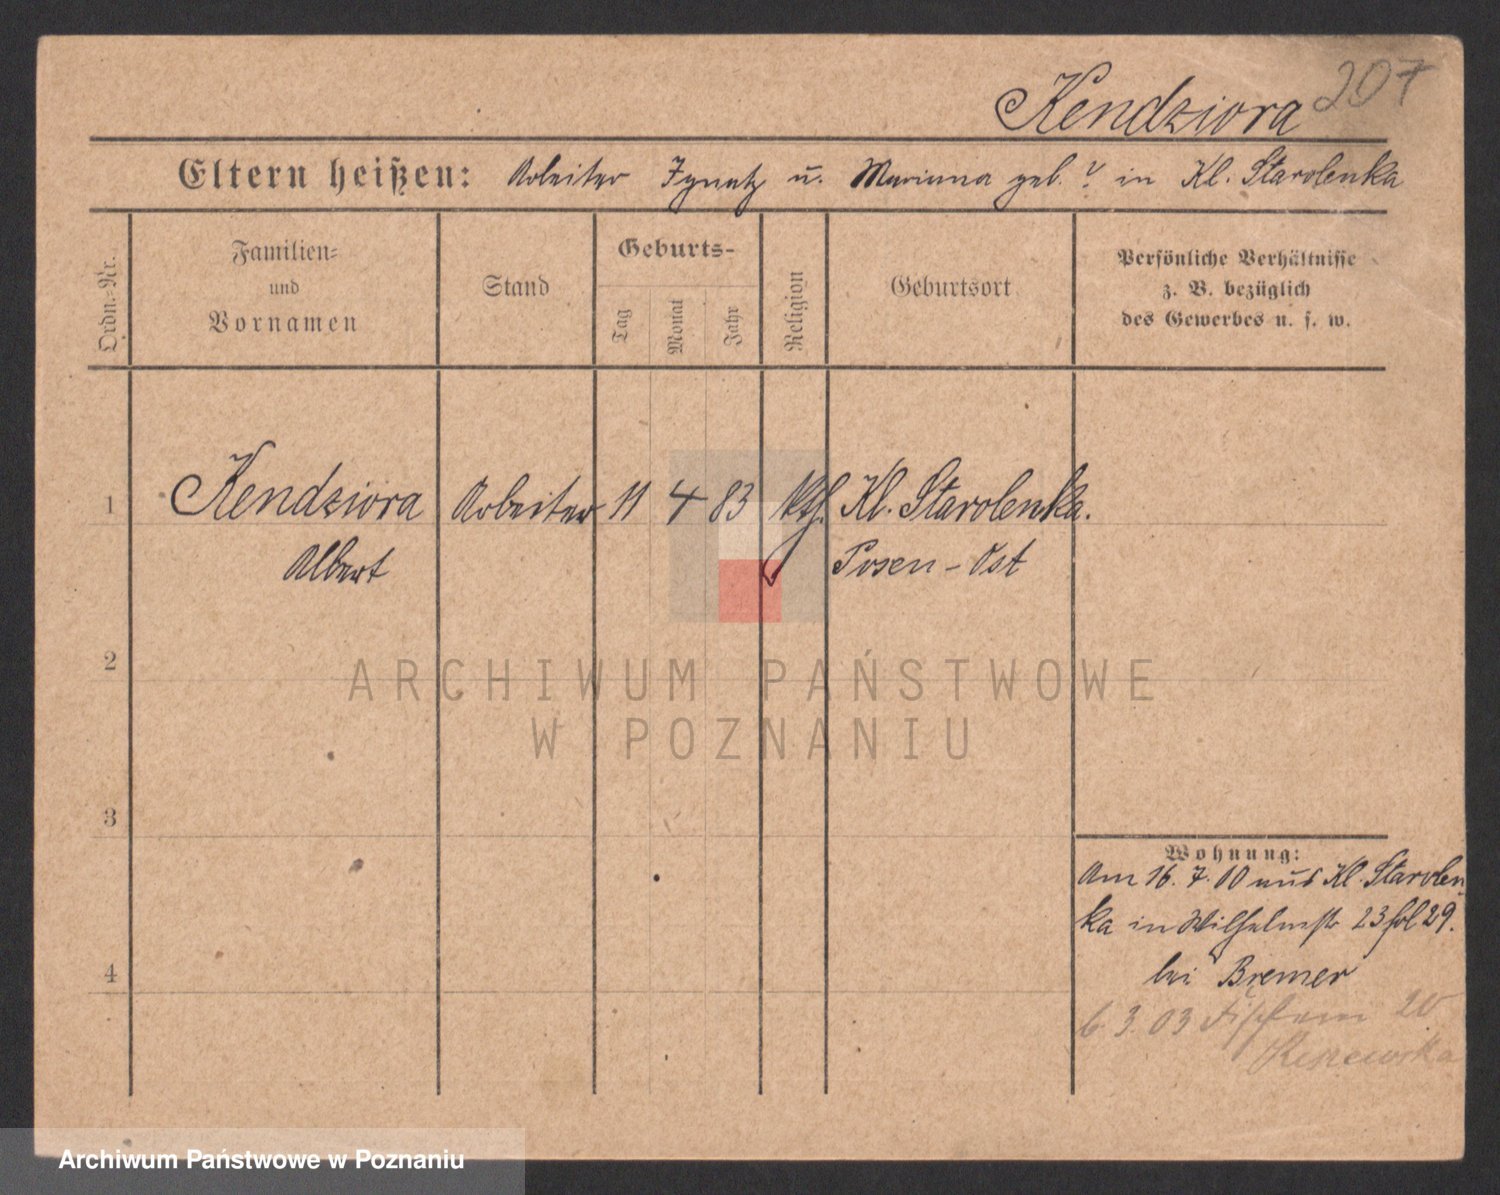 Kendziora 207
Eltern heißen: Arbeiter Ignatz u. Marianna geb. ? in Kl. Starolenka
Ordn.-Nr.
Familien-
und
Vornamen
Stand
Geburts-
Tag
Monat
Jahr
Religion
Geburtsort
Persönliche Verhältnisse
z. B. bezüglich
des Gewerbes u. s. w.
1 Kendziora Arbeiter 11 4 83 kth. Kl. Starolenka.
Albert Posen-Ost
2
ARCHIWUM PAŃSTWOWE
W POZNANIU
3
Wohnung:
Am 16. 7. 00 aus Kl. Starolen
ka in Wilhelmstr 23 fol 29.
4 bei Bremer
6. 3. 03 20
Archiwum Państwowe w Poznaniu